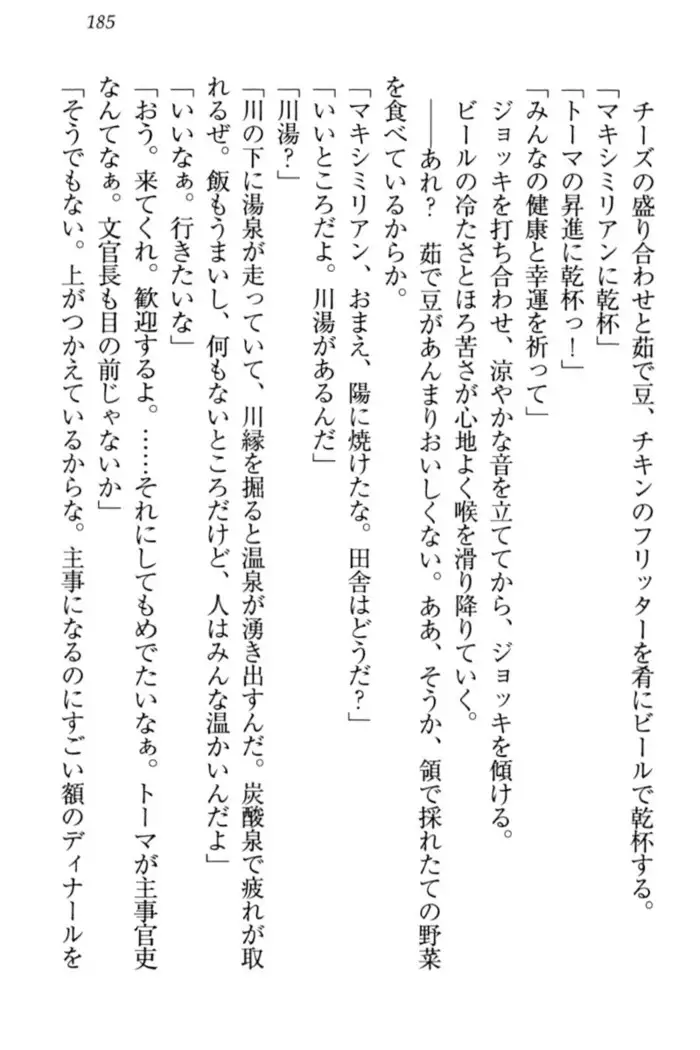 185
チーズの盛り合わせと茹で豆、チキンのフリッターを肴にビールで乾杯する。
「マキシミリアンに乾杯」
「トーマの昇進に乾杯っ！」
「みんなの健康と幸運を祈って」
ジョッキを打ち合わせ、涼やかな音を立ててから、ジョッキを傾ける。
ビールの冷たさとほろ苦さが心地よく喉を滑り降りていく。
――あれ？　茹で豆があんまりおいしくない。ああ、そうか、領で採れたての野菜
を食べているからか。
「マキシミリアン、おまえ、陽に焼けたな。田舎はどうだ？」
「いいところだよ。川湯があるんだ」
「川湯？」
「川の下に温泉が走っていて、川縁を掘ると温泉が湧き出すんだ。炭酸泉で疲れが取
れるぜ。飯もうまいし、何もないところだけど、人はみんな温かいんだよ」
「いいなぁ。行きたいな」
「おう。来てくれ。歓迎するよ。……それにしてもめでたいなぁ。トーマが主事官吏
なんてなぁ。文官長も目の前じゃないか」
「そうでもない。上がつかえているからな。主事になるのにすごい額のディナールを